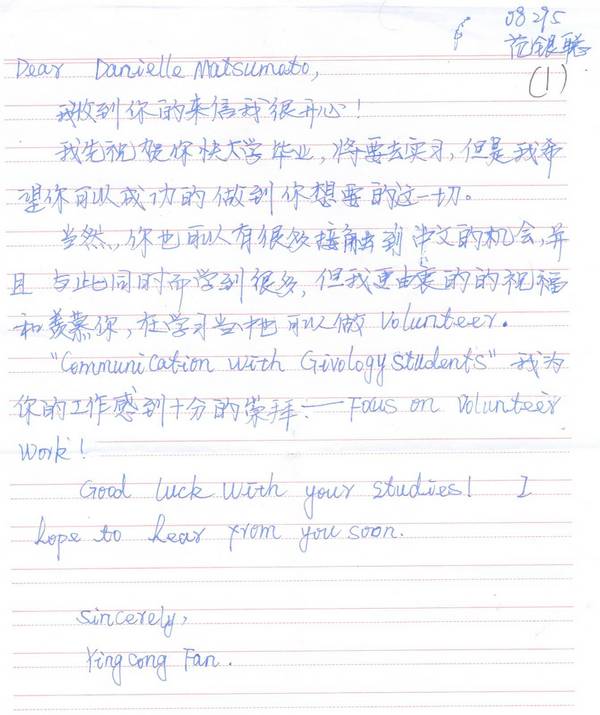 08295
范银聪
(1)
Dear Danielle Matsumato,
我收到你的来信我很开心!
我先祝贺你快大学毕业,将要去实习,但是我希
望你可以成功的做到你想要的这一切。
当然,你也可以有很多接触到中文的机会,并
且与此同时而学到很多,但我更由衷的的祝福
和羡慕你,在学习当中也可以做 Volunteer.
"Communication with Givology students" 我为
你的工作感到十分的崇拜:—— Fous on Volunteer
work!
Good luck with your studies! I
hope to hear from you soon.
Sincerely,
Yingcong Fan.